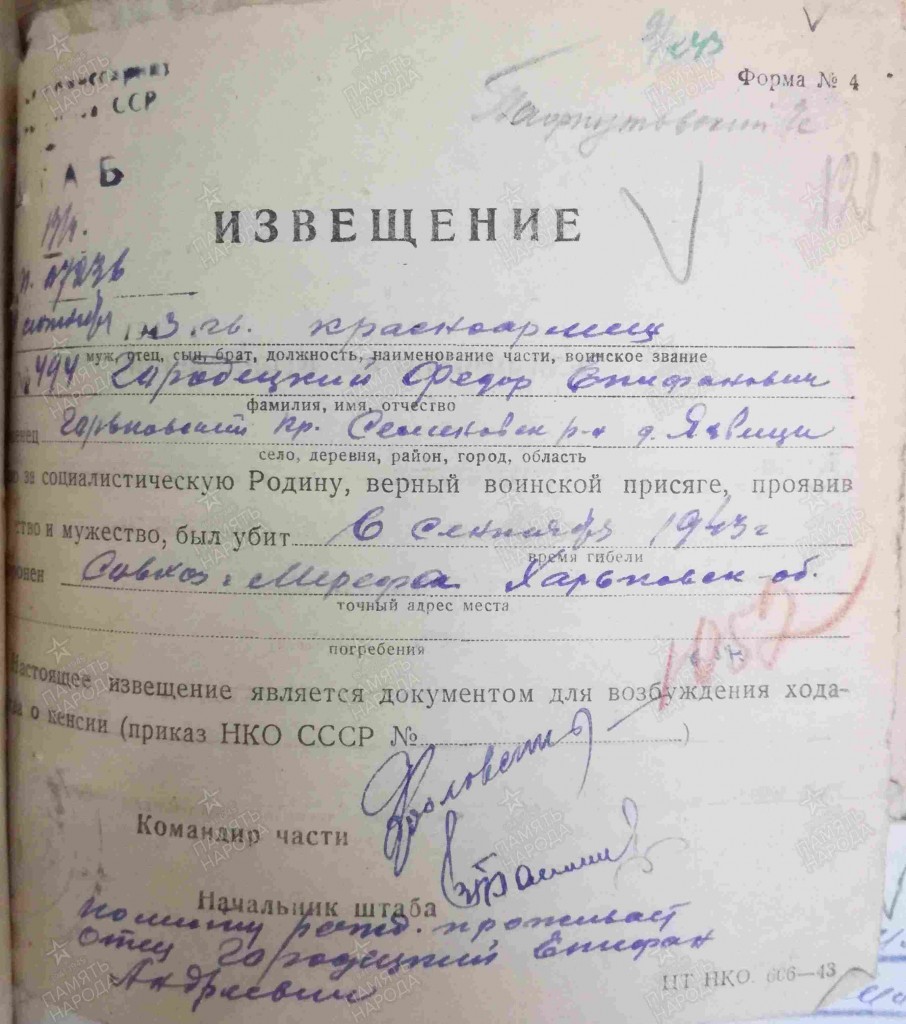 9/X 43
Форма № 4
ССР
АБ
121
ИЗВЕЩЕНИЕ
п. 07236
сентября 1943 гв. красноармеец
муж, отец, сын, брат, должность, наименование части, воинское звание
494 Городецкий Федор Епифанович
фамилия, имя, отчество
Горьковский кр. Семеновск р-н д. Явлицы
село, деревня, район, город, область
социалистическую Родину, верный воинской присяге, проявив
ство и мужество, был убит 6 сентября 1943 г
время гибели
ронен Совхоз г. Мерефа Харьковск об.
точный адрес места
погребения
1052
Настоящее извещение является документом для возбуждения хода-
о пенсии (приказ НКО СССР № )
Командир части
Начальник штаба
по месту рожд. проживает
отец Городецкий Епифан
Андреевич
ЦТ НКО. 606—43
ПАМЯТЬ НАРОДА